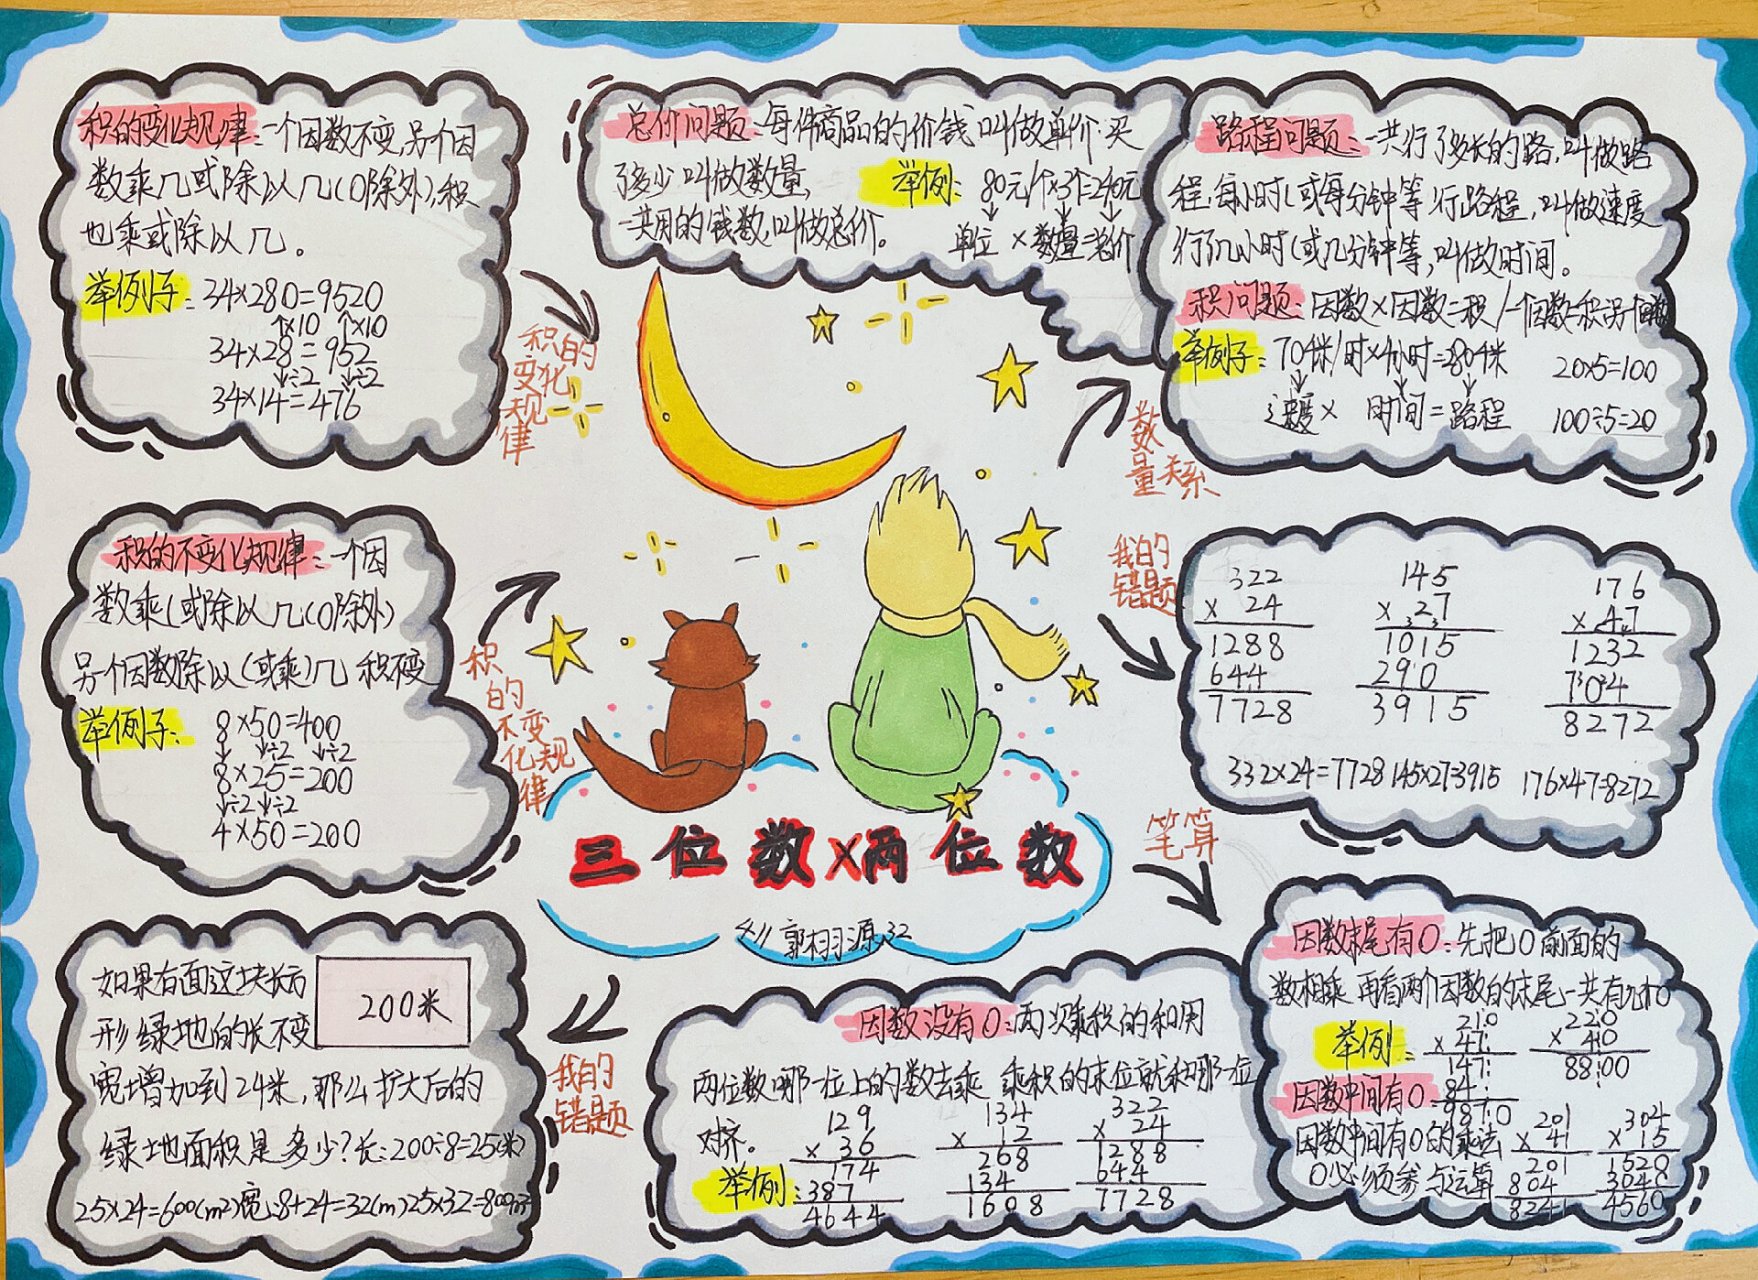 积的变化规律：一个因数不变,另个因
数乘几或除以几(0除外),积
也乘或除以几。
举例子：34×280=9520
↑×10 ↑×10
34×28=952
↓÷2 ↓÷2
34×14=476
积的
变化
规
律
总价问题：每件商品的价钱叫做单价.买
了多少叫做数量,
举例：80元/个×3个=240元
一共用的钱数,叫做总价。
单位×数量=总价
路程问题：一共行了多长的路,叫做路
程,每小时(或每分钟等行路程,叫做速度
行了几小时(或几分钟等,叫做时间。
积问题：因数×因数=积/一个因数=积÷另一个因数
举例子：70千米/时×4小时=280千米 20×5=100
速度× 时间=路程 100÷5=20
数
量关系
积的不变化规律：一个因
数乘(或除以几(0除外)
另一个因数除以(或乘)几 积不变
举例子：8×50=400
↓ ↓÷2 ↓÷2
8×25=200
↓÷2 ↓÷2
4×50=200
积
的
不变
化规
律
我的
错题
322 145 176
× 24 × 27 × 47
1288 1015 1232
644 290 704
7728 3915 8272
332×24=7728 145×27=3915 176×47=8272
笔算
三位数×两位数
411 郭栩源 32
如果右面这块长方
200米
形绿地的长不变
宽增加到24米,那么扩大后的
绿地面积是多少?长：200÷8=25(米)
25×24=600(m2)宽：8+24=32(m)25×32=800m²
我的
错题
因数没有0：两次乘积的和用
两位数哪一位上的数去乘 乘积的末位就和哪一位
对齐。
举例：
129 134 322
× 36 × 12 × 24
174 268 1288
387 134 644
4644 1608 7728
因数末尾有0：先把0前面的
数相乘 再看两个因数的末尾一共有几个0
举例：
210 220
× 47 × 40
147 8800
84
9870
因数中间有0：
因数中间有0的乘法
0必须参与运算
201 304
× 41 × 15
201 1520
804 3040
8241 4560